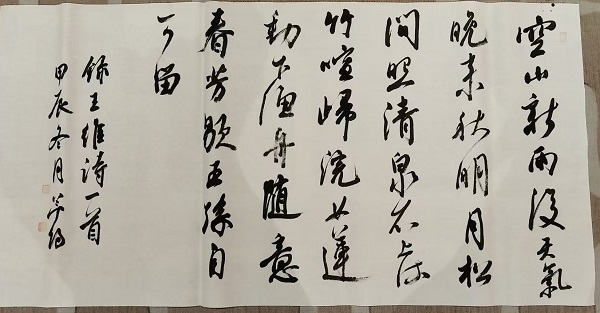 空山新雨後天氣
晚来秋明月松
间照清泉石上流
竹喧歸浣女蓮
動下漁舟随意
春芳歇王孫自
可留
錄王維诗一首
甲辰冬月